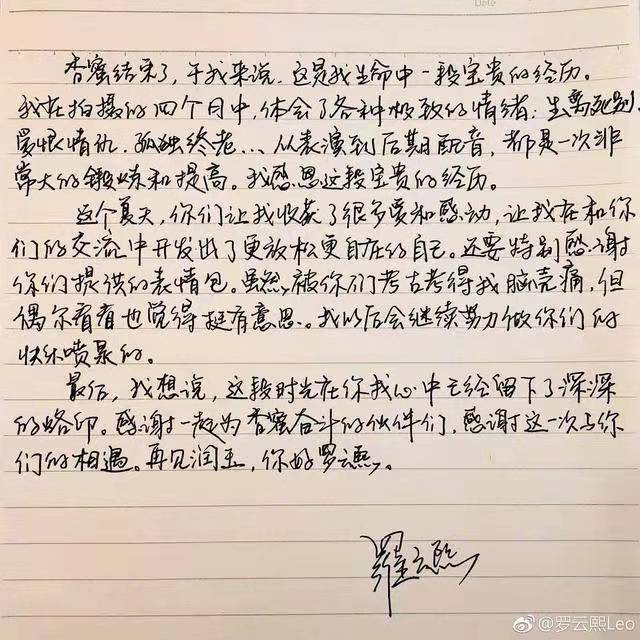 Date
香蜜结束了，于我来说，这是我生命中一段宝贵的经历。
我在拍摄的四个月中，体会了各种极致的情绪：生离死别，
爱恨情仇，孤独终老…从表演到后期配音，都是一次非
常大的锻炼和提高。我感恩这段宝贵的经历。
这个夏天，你们让我收获了很多爱和感动，让我在和你
们的交流中开发出了更放松更自在的自己。还要特别感谢
你们提供的表情包。虽然被你们考古考得我脑壳痛，但
偶尔看看也觉得挺有意思。我以后会继续努力做你们的
快乐喷泉的。
最后，我想说，这段时光在你我心中已经留下了深深
的烙印。感谢一起为香蜜奋斗的伙伴们，感谢这一次与你
们的相遇。再见润玉，你好罗云熙。
罗云熙
@罗云熙Leo